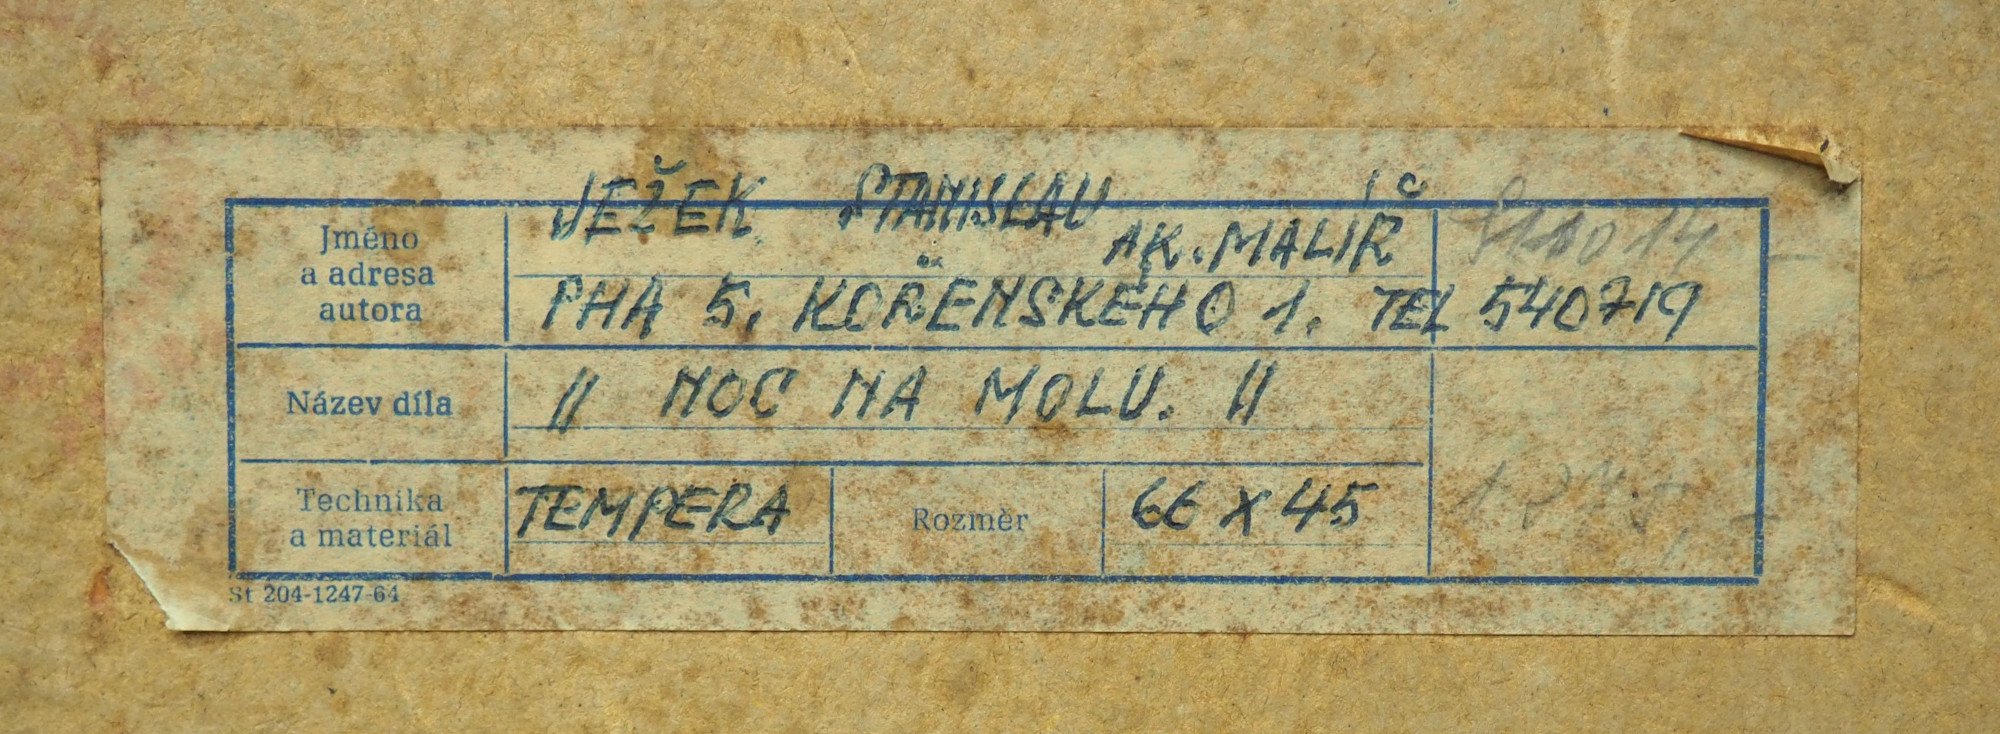 JEŽEK STANISLAV
Jméno
a adresa
autora
AK. MALÍŘ
PHA 5, KOŘENSKÉHO 1. TEL 540719
Název díla
" NOC NA MOLU. "
Technika
a materiál
TEMPERA
Rozměr
66 X 45
St 204-1247-64